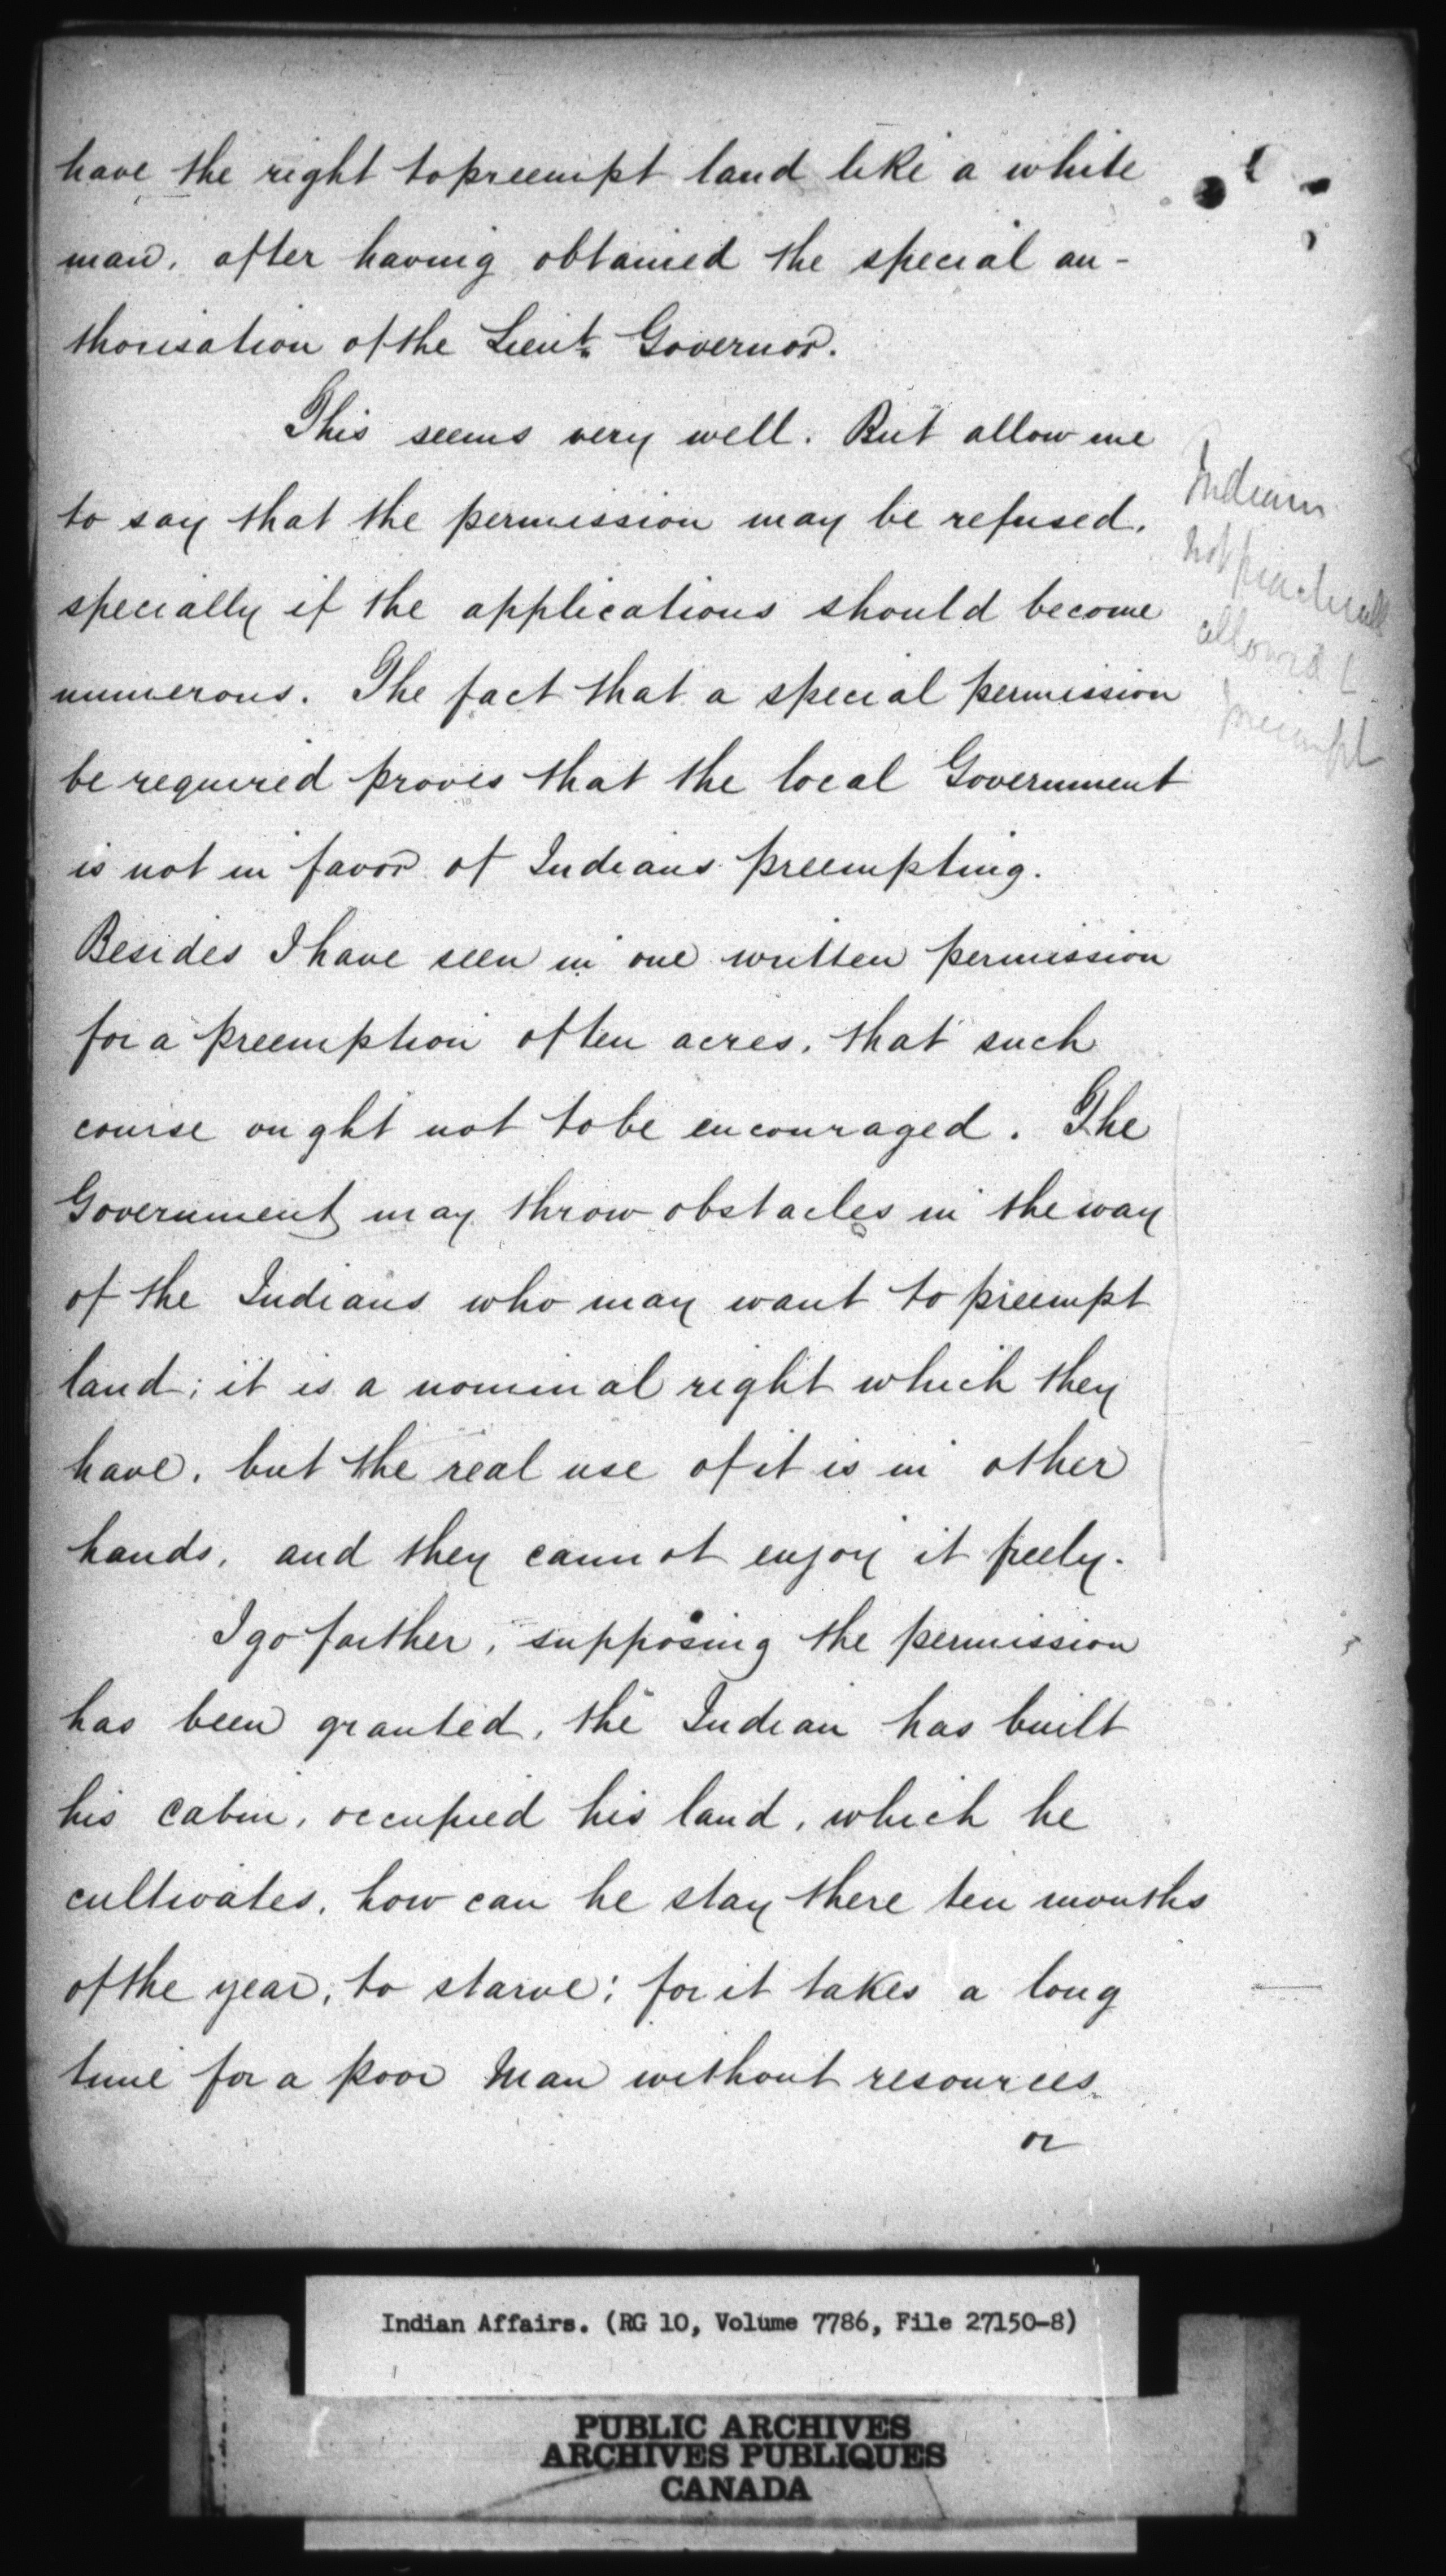 have the right to preempt land like a white
man, after having obtained the special au-
thorisation of the Lieut. Governor.
This seems very well. But allow me
to say that the permission may be refused,
specially if the applications should become
numerous. The fact that a special permission
be required proves that the local Government
is not in favor of Indians preempting.
Besides I have seen in one written permission
for a preemption of ten acres, that such
course ought not to be encouraged. The
Government may throw obstacles in the way
of the Indians who may want to preempt
land; it is a nominal right which they
have, but the real use of it is in other
hands, and they cannot enjoy it freely.
I go farther, supposing the permission
has been granted, the Indian has built
his cabin, occupied his land, which he
cultivates, how can he stay there ten months
of the year, to starve; for it takes a long
time for a poor man without resources
or
Indians
not practically
allowed t
preempt
Indian Affairs. (RG 10, Volume 7786, File 27150-8)
PUBLIC ARCHIVES
ARCHIVES PUBLIQUES
CANADA